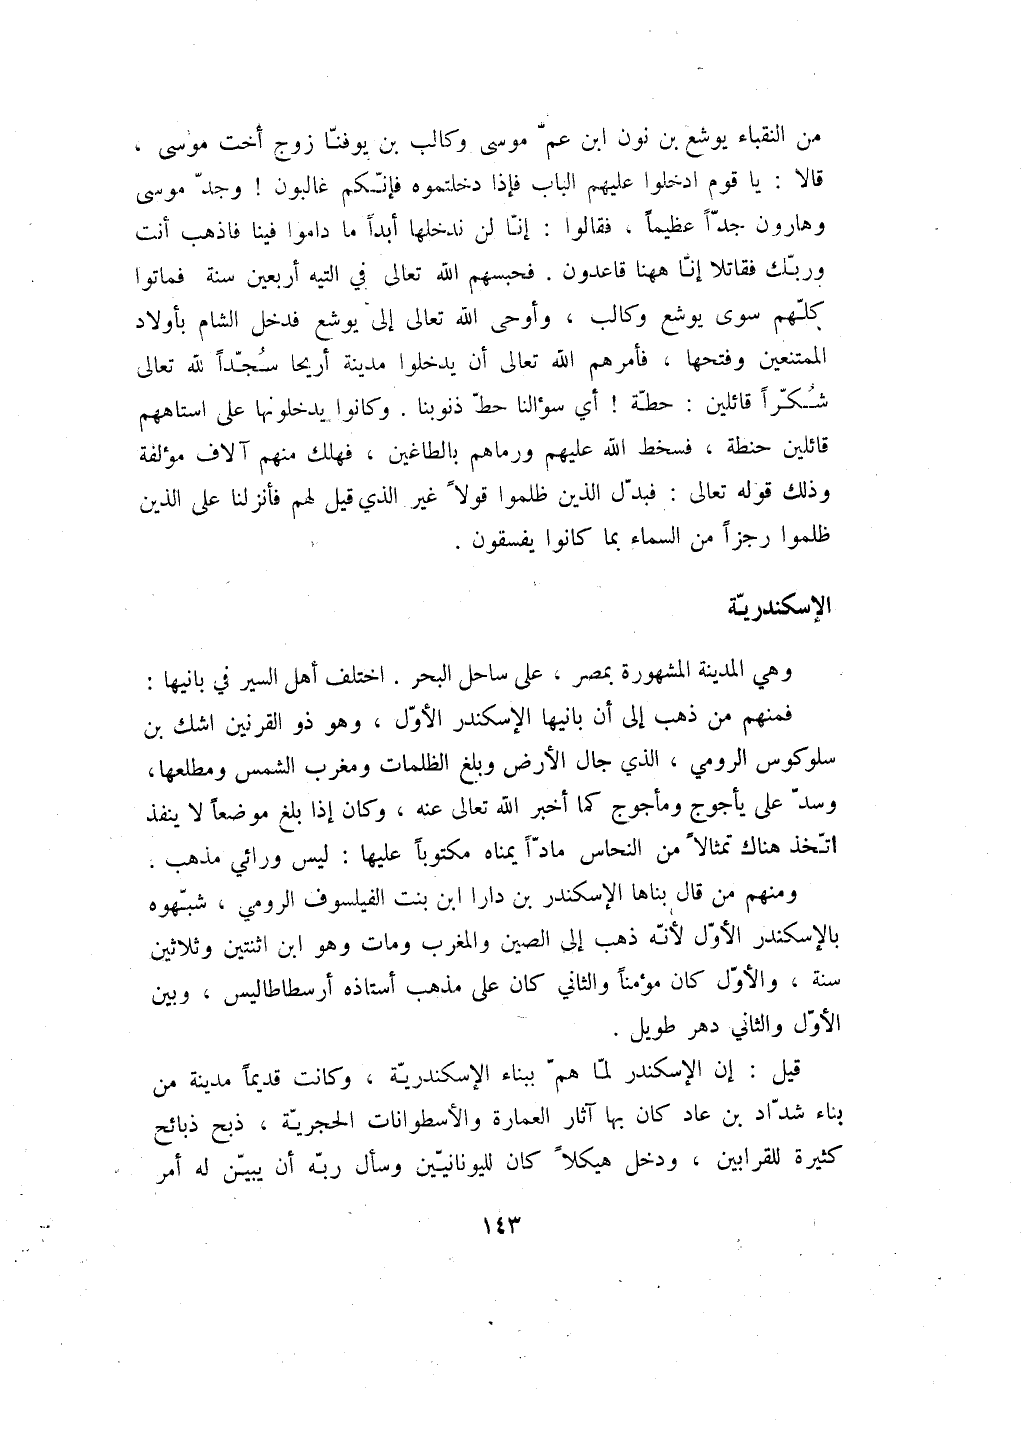 من النقباء يوشع بن نون ابن عمّ موسى وكالب بن يوفنّا زوج أخت موسى ،
قالا : يا قوم ادخلوا عليهم الباب فإذا دخلتموه فإنّكم غالبون ! وجدّ موسى
وهارون جدّاً عظيماً ، فقالوا : إنّا لن ندخلها أبداً ما داموا فينا فاذهب أنت
وربّك فقاتلا إنّا ههنا قاعدون . فحبسهم الله تعالى في التيه أربعين سنة فماتوا
كلّهم سوى يوشع وكالب ، وأوحى الله تعالى إلى يوشع فدخل الشام بأولاد
الممتنعين وفتحها ، فأمرهم الله تعالى أن يدخلوا مدينة أريحا سُجّداً لله تعالى
شُكّراً قائلين : حطّة ! أي سوالنا حطّ ذنوبنا . وكانوا يدخلونها على استاههم
قائلين حنطة ، فسخط الله عليهم ورماهم بالطاغين ، فهلك منهم آلاف موُلفة
وذلك قوله تعالى : فبدّل الذين ظلموا قولاً غير الذي قيل لهم فأنزلنا على الذين
ظلموا رجزاً من السماء بما كانوا يفسقون .
الإسكندريّة
وهي المدينة المشهورة بمصر ، على ساحل البحر . اختلف أهل السير في بانيها :
فمنهم من ذهب إلى أن بانيها الإسكندر الأوّل ، وهو ذو القرنين اشك بن
سلوكوس الرومي ، الذي جال الأرض وبلغ الظلمات ومغرب الشمس ومطلعها،
وسدّ على يأجوج ومأجوج كما أخبر الله تعالى عنه ، وكان إذا بلغ موضعاً لا ينفذ
اتّخذ هناك تمثالاً من النحاس مادّاً يمناه مكتوباً عليها : ليس ورائي مذهب .
ومنهم من قال بناها الإسكندر بن دارا ابن بنت الفيلسوف الرومي ، شبّهوه
بالإسكندر الأوّل لأنّه ذهب إلى الصين والمغرب ومات وهو ابن اثنتين وثلاثين
سنة ، والأوّل كان مؤمناً والثاني كان على مذهب أستاذه أرسطاطاليس ، وبين
الأوّل والثاني دهر طويل .
قيل : إن الإسكندر لمّا همّ ببناء الإسكندريّة ، وكانت قديماً مدينة من
بناء شدّاد بن عاد كان بها آثار العمارة والأسطوانات الحجريّة ، ذبح ذبائح
كثيرة للقرابين ، ودخل هيكلاً كان لليونانيّين وسأل ربّه أن يبيّن له أمر
١٤٣